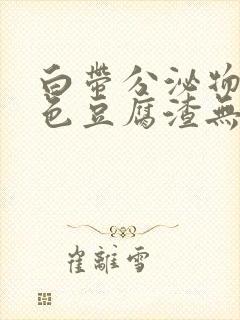 白帶分泌物
色豆腐渣無
崔離雪